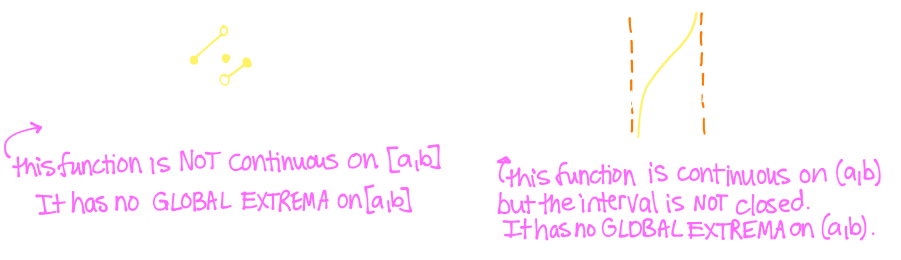 this function is NOT continuous on [a,b]
It has no GLOBAL EXTREMA on [a,b]
this function is continuous on (a,b)
but the interval is NOT closed.
It has no GLOBAL EXTREMA on (a,b).